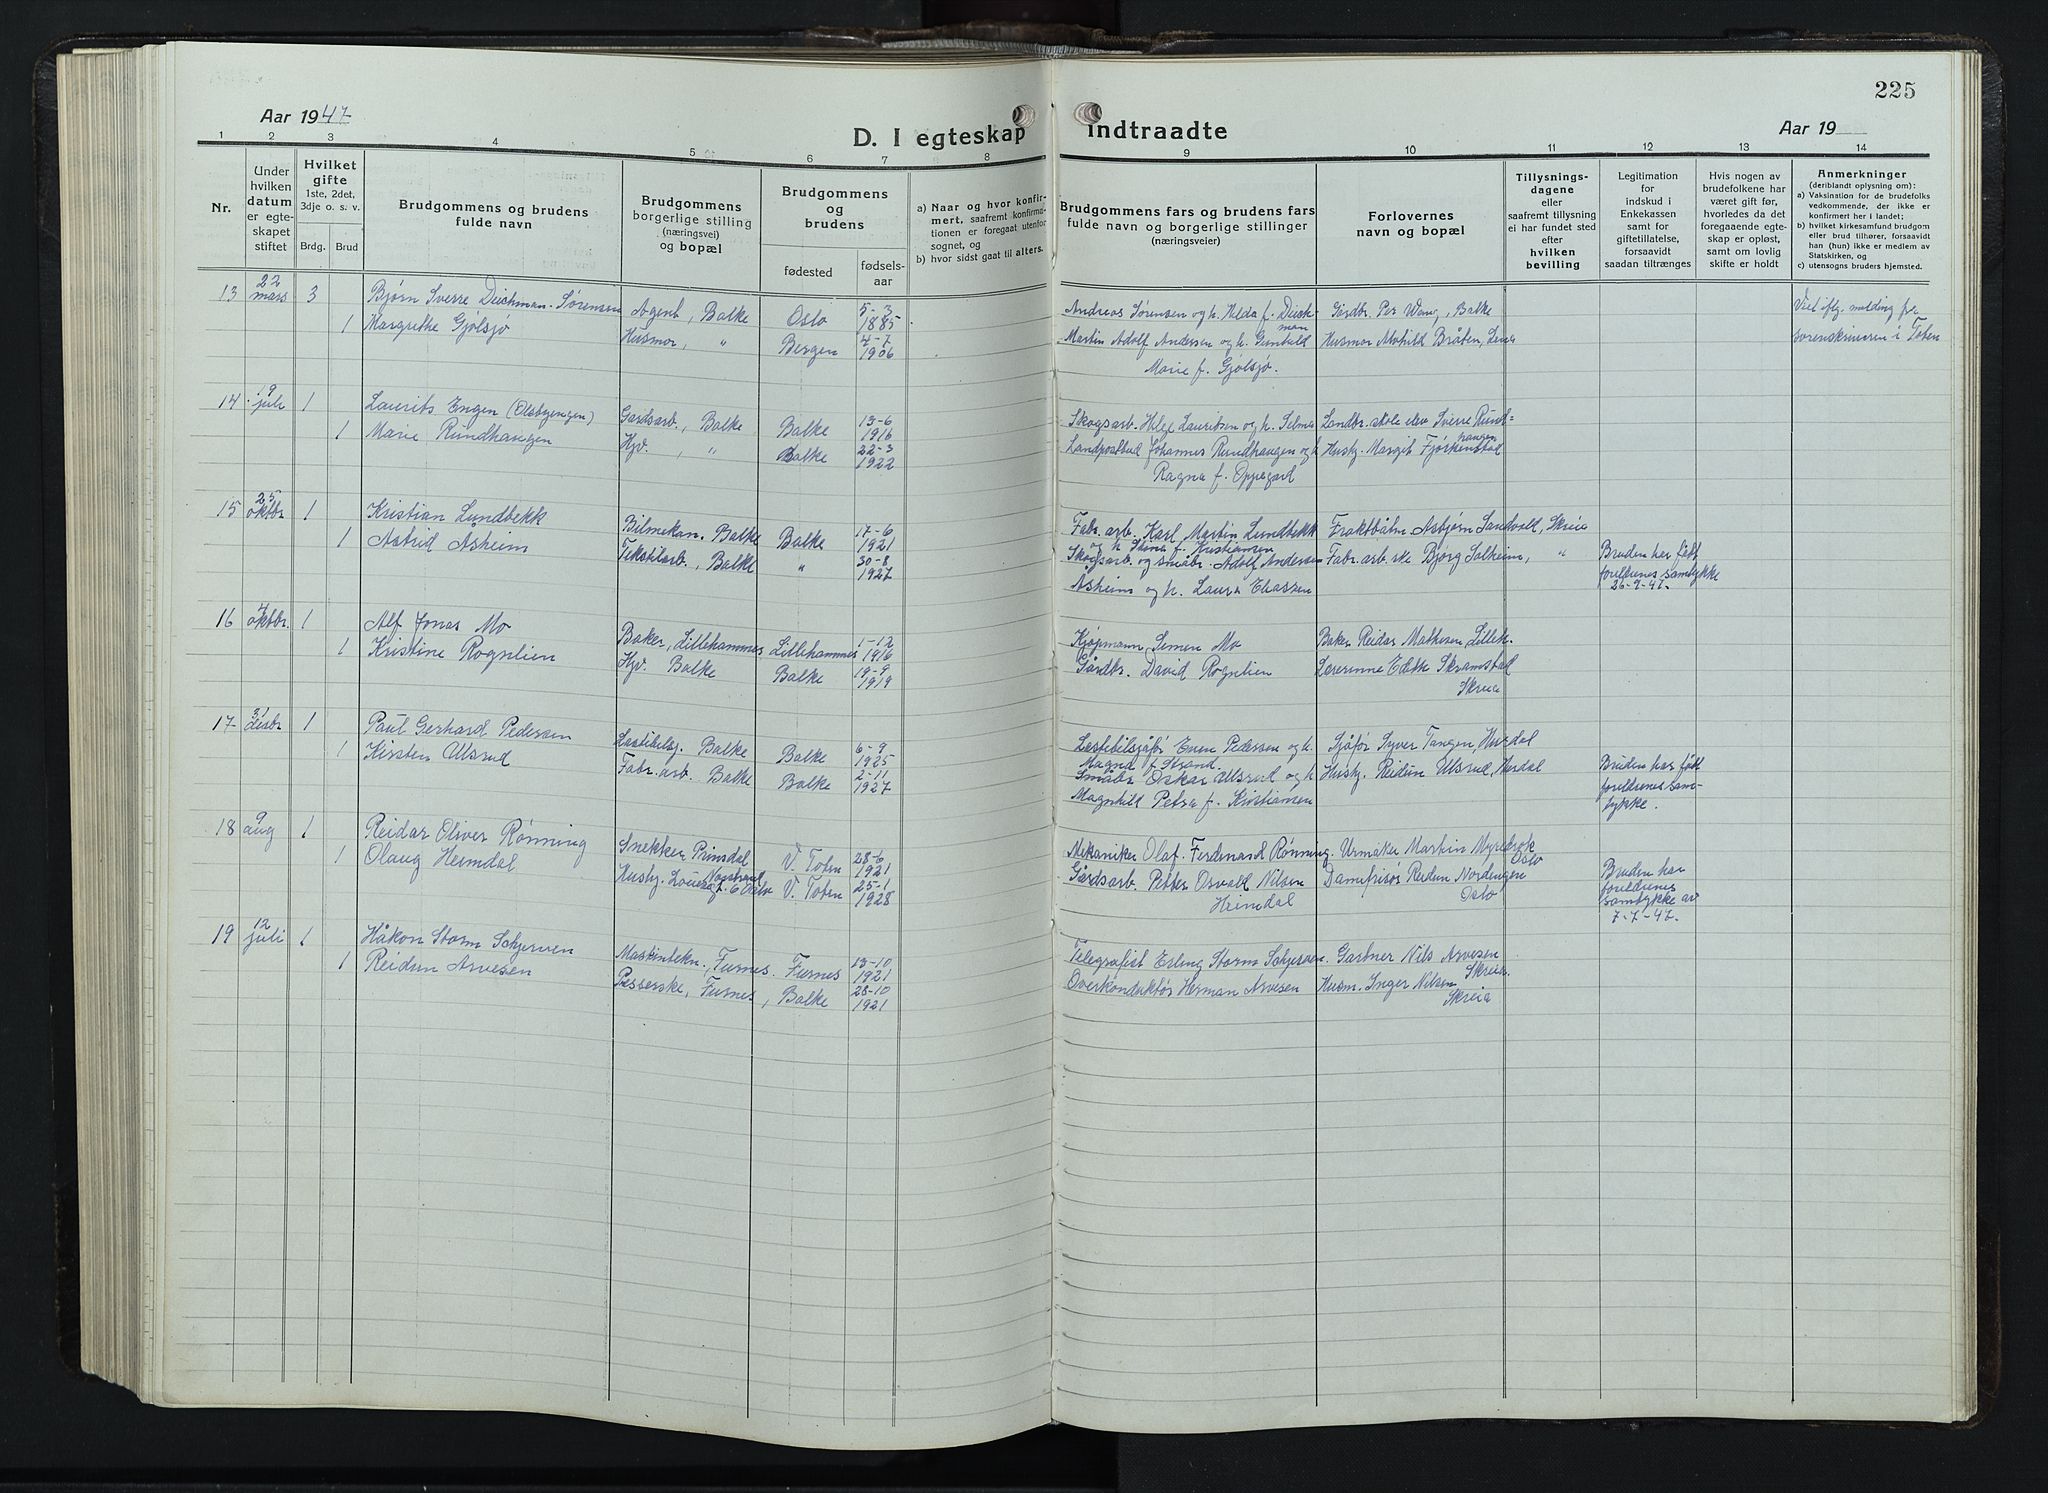 225
Aar 1947
D. I egteskap indtraadte
Aar 19
1 2 3 4 5 6 7 8 9 10 11 12 13 14
Nr.
Under hvilken datum er egteskapet stiftet
Hvilket gifte
1ste, 2det, 3dje o. s. v.
Brdg. Brud
Brudgommens og brudens fulde navn
Brudgommens borgerlige stilling (næringsvei) og bopæl
Brudgommens og brudens
fødested
fødselsaar
a) Naar og hvor konfirmert, saafremt konfirmationen er foregaat utenfor sognet, og
b) hvor sidst gaat til alters.
Brudgommens fars og brudens fars fulde navn og borgerlige stillinger (næringsveier)
Forlovernes navn og bopæl
Tillysningsdagene eller saafremt tillysning ei har fundet sted efter hvilken bevilling
Legitimation for indskud i Enkekassen samt for giftetillatelse, forsaavidt saadan tiltrænges
Hvis nogen av brudefolkene har været gift før, hvorledes da det foregaaende egteskap er opløst, samt om lovlig skifte er holdt
Anmerkninger
(deriblandt oplysning om):
a) Vaksination for de brudefolks vedkommende, der ikke er konfirmert her i landet;
b) hvilket kirkesamfund brudgom eller brud tilhører, forsaavidt han (hun) ikke er medlem av Statskirken, og
c) utensogns bruders hjemsted.
13 22 mars 3 Bjørn Sverre Deichman-Sørensen Agent, Balke Oslo 5-3 1885 Andreas Sørensen og h. Hilda f. Deichman Gardbr. Per Wang, Balke Viet iflg. melding fra sorenskriveren i Toten
1 Margrethe Gjølsjø Husmor, " Bergen 4-7 1906 Martin Adolf Andersen og h. Gunhild Marie f. Gjølsjø. Husmor Alvhild Bråten, Lena
14 19 juli 1 Laurits Engen (Olsbyengen) Gardsarb., Balke Balke 13-6 1916 Skogsarb. Helge Lauritsen og h. Selma Landbr. skole elev Sverre Rundhaugen
1 Marie Rundhaugen Hjv. , " Balke 22-3 1922 Landpostbud Johannes Rundhaugen og h Ragna f. Oppegard Hushj. Margit Fjørkenstad
15 25 oktbr 1 Kristian Lundbekk Bilmekan. Balke Balke 17-6 1921 Fabr. arb. Karl Martin Lundbekk og h. Stena f. Kristiansen Fraktbåtm Asbjørn Sandvold, Skreia
1 Astrid Åsheim Tekstilarb., Balke " 30-8 1927 Skogsarb. og småbr. Adolf Andersen Åsheim og h. Laura Eliassen Fabr. arb.ske Bjørg Solheim, " Bruden har fått foreldrenes samtykke 26-9-47.
16 4 oktbr. 1 Alf Jonas Mo Baker, Lillehammer Lillehammer 1-12 1916 Kjøpmann Simen Mo Baker Reidar Mathisen Lilleh.
1 Kristine Rognlien Hjv. Balke Balke 19-9 1919 Gårdbr. David Rognlien Lærerinne Edith Skramstad Skreia
17 31 desbr 1 Paul Gerhard Pedersen Lastebilsj. Balke Balke 6-9 1925 Lastebilsjåfør Even Pedersen og h. Magna f. Strand. Sjåfør Syver Tangen, Hurdal
1 Kirsten Ulsrud Fabr. arb. Balke Balke 2-11 1927 Småbr Oskar Ulsrud og h Magnhild Petra f. Kristiansen Hushj. Reidun Ulsrud, Hurdal Bruden har fått foreldrenes samtykke.
18 9 aug 1 Reidar Oliver Rønning Snekker Prinsdal V. Toten 28-6 1921 Mekaniker Olaf Ferdinand Rønning Urmaker Martin Myrebrok Oslo
1 Olaug Heimdal Hushj. Oslo V. Toten 25-1 1928 Gårdsarb. Petter Osvald Nilsen Heimdal Damefrisør Reidun Nordengen Oslo Bruden har foreldrenes samtykke av 7-7-47.
19 12 juli 1 Håkon Storm Schjerven Maskintekn., Furnes. Furnes 13-10 1921 Telegrafist Erling Storm Schjerven. Gartner Nils Arvesen Skreia
1 Reidun Arvesen Pisserske, Furnes, Balke 28-10 1921 Overkonduktør Herman Arvesen Husm. Inger Nilsen Skreia